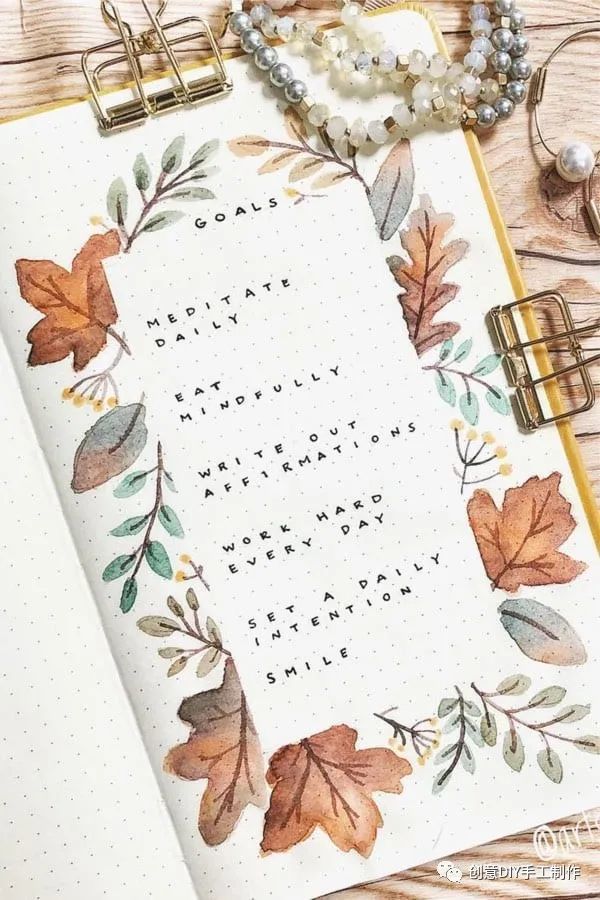 GOALS
MEDITATE
DAILY
EAT
MINDFULLY
WRITE OUT
AFFIRMATIONS
WORK HARD
EVERY DAY
SET A DAILY
INTENTION
SMILE
创意DIY手工制作